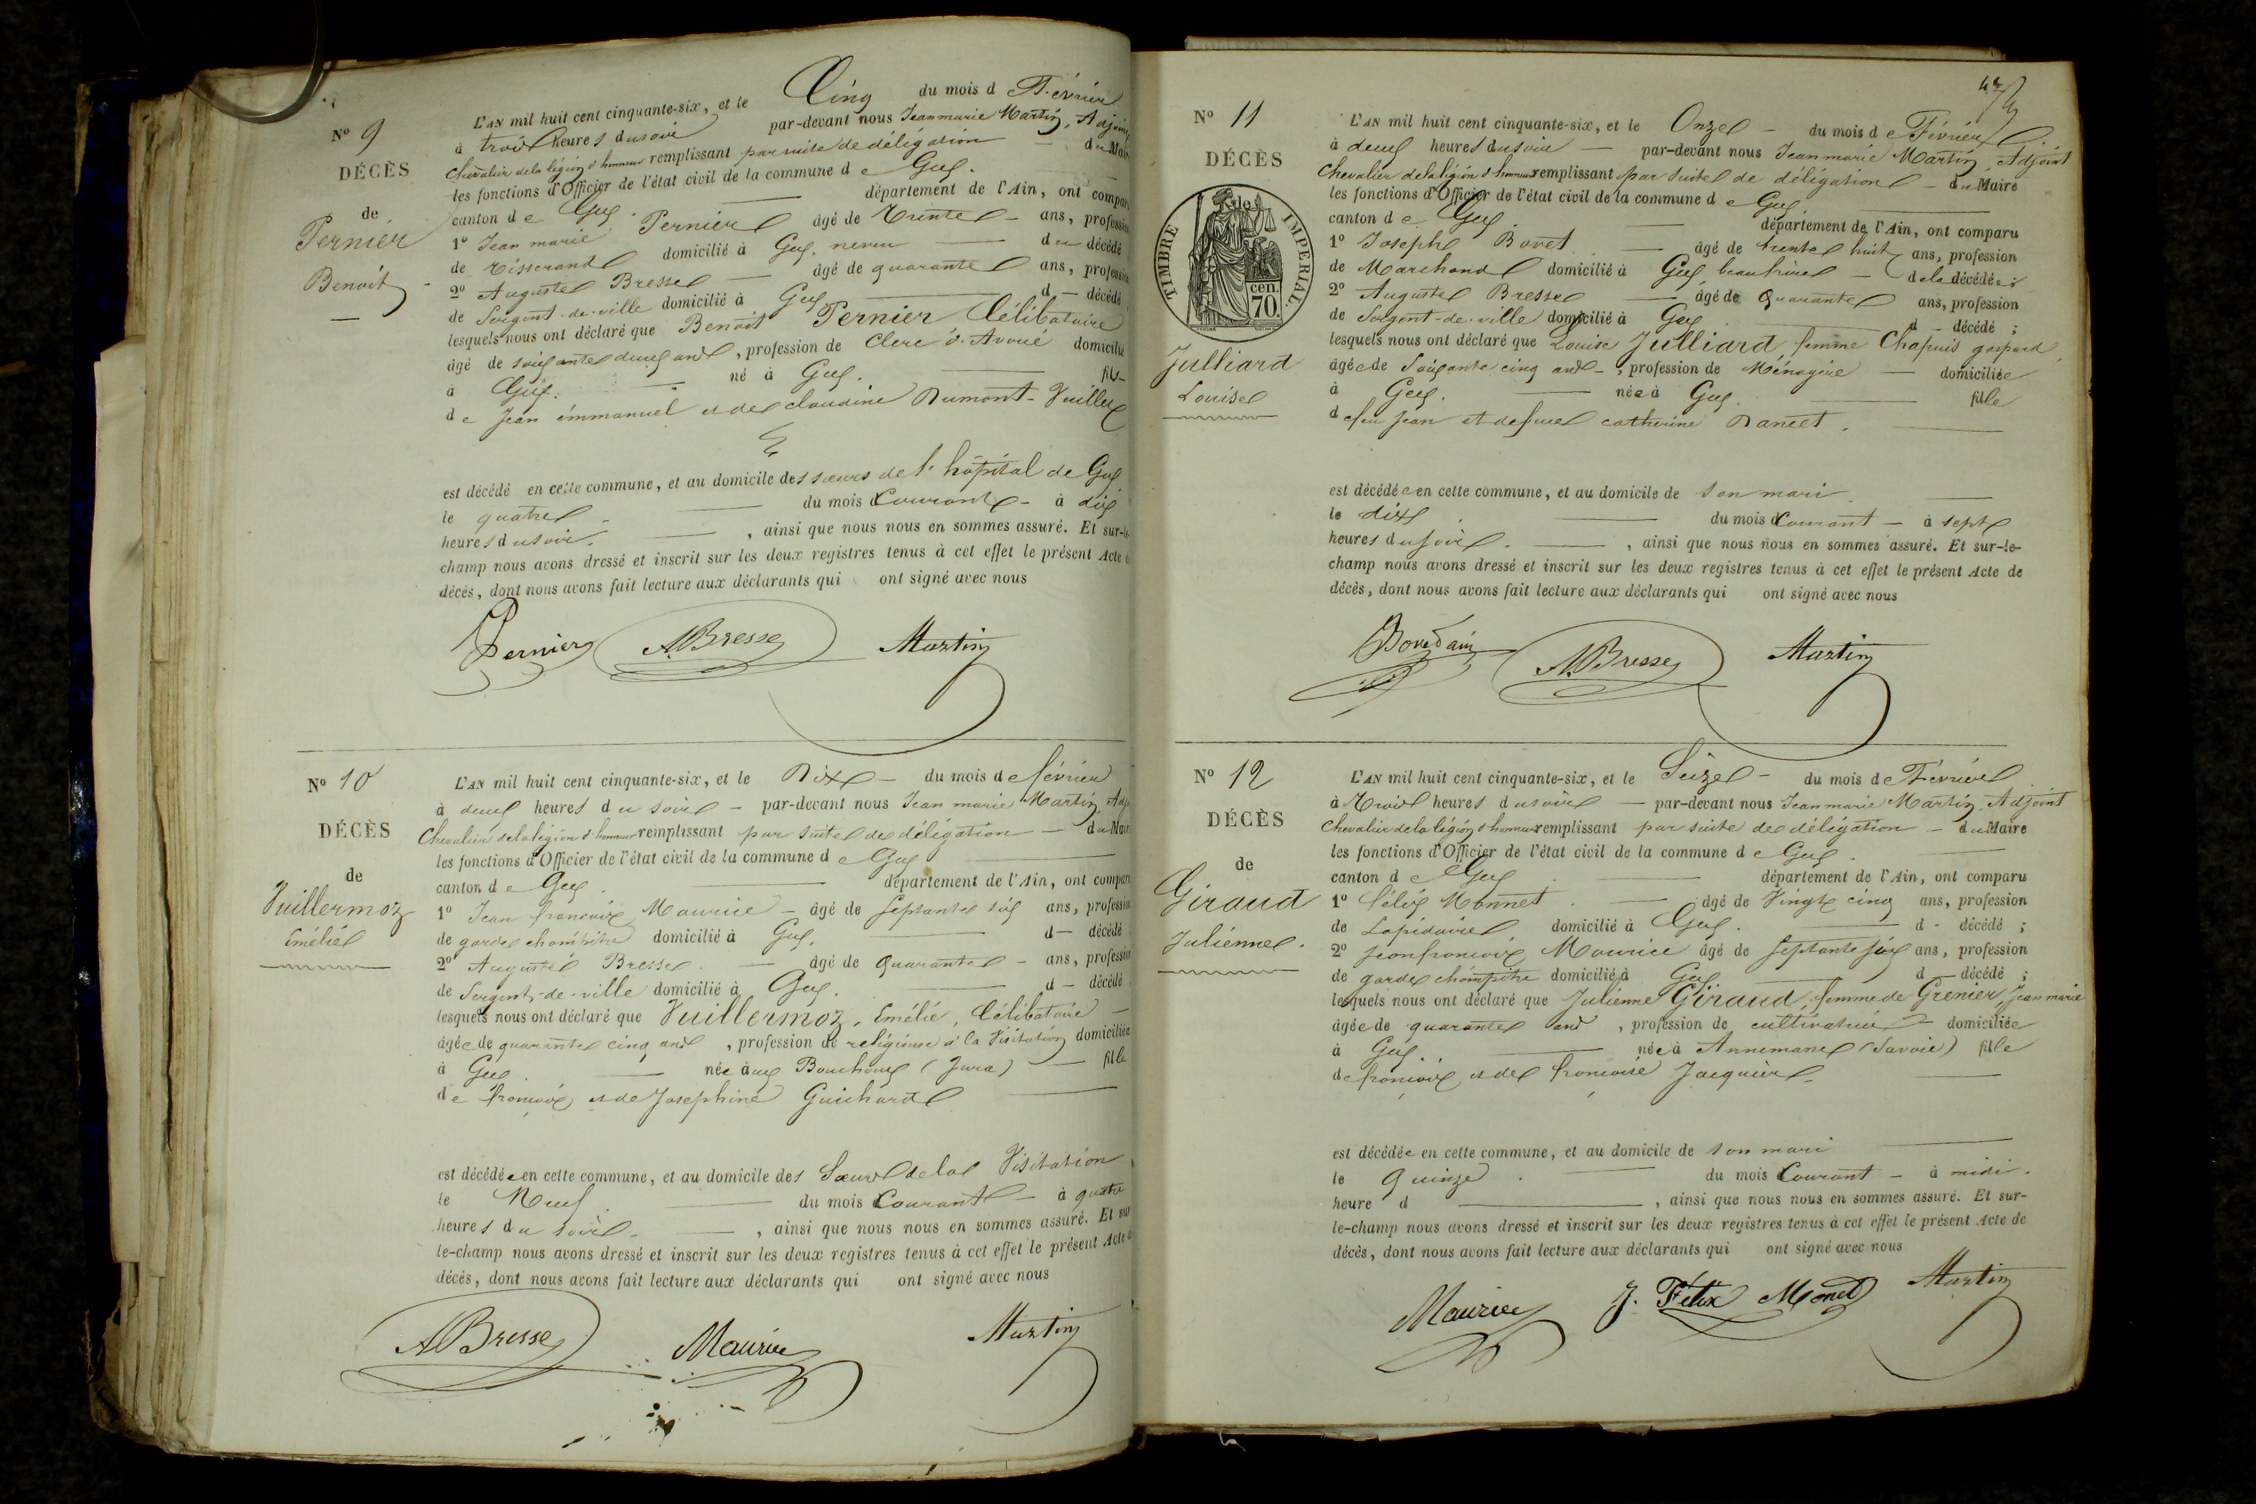 Nº 9
DÉCÈS
de
Pernier
Benoit
L'AN mil huit cent cinquante-six, et le Cinq du mois de Février
à trois heures du soir par-devant nous Jean marie Martin, Adjoint
Chevalier de la légion d'honneur remplissant par suite de délégation du Maire
les fonctions d'Officier de l'état civil de la commune de Gex.
canton de Gex. département de l'Ain, ont comparu
1º Jean marie Pernier âgé de Trente ans, profession
de Tisserand domicilié à Gex. neveu du décédé
2º Auguste Bresse âgé de quarante ans, profession
de Sergent-de-ville domicilié à Gex d décédé
lesquels nous ont déclaré que Benoit Pernier Célibataire
âgé de soixante deux ans, profession de Clerc d'Avoué domicilié
à Gex. né à Gex. fils
de Jean émmanuel et de claudine Dumont-Vuillex
est décédé en cette commune, et au domicile des sœurs de l'hôpital de Gex
le quatre du mois Courant à dix
heures du soir. , ainsi que nous nous en sommes assuré. Et sur-le-
champ nous avons dressé et inscrit sur les deux registres tenus à cet effet le présent Acte de
décès, dont nous avons fait lecture aux déclarants qui ont signé avec nous
Pernier ABresse Martin
Nº 10
DÉCÈS
de
Vuillermoz
Emélie
L'AN mil huit cent cinquante-six, et le Dix du mois de février
à deux heures du soir par-devant nous Jean marie Martin Adj
Chevalier de la légion d'honneur remplissant par suite de délégation du Maire
les fonctions d'Officier de l'état civil de la commune de Gex
canton de Gex. département de l'Ain, ont comparu
1º Jean francoix Maurice âgé de Septante six ans, profession
de garde champêtre domicilié à Gex. d décédé
2º Auguste Bresse âgé de Quarante ans, profession
de Sergent-de-ville domicilié à Gex. d décédé
lesquels nous ont déclaré que Vuillermoz, Emélie, Célibataire
âgée de quarante cinq ans, profession de religieuse à la Visitation domiciliée
à Gex. née aux Bouchoux (Jura) fille
de francoix et de Josephine Guichard
est décédée en cette commune, et au domicile des Sœurs de la Visitation
le Neuf. du mois Courant à quatre
heures du soir. , ainsi que nous nous en sommes assuré. Et sur
le-champ nous avons dressé et inscrit sur les deux registres tenus à cet effet le présent Acte de
décès, dont nous avons fait lecture aux déclarants qui ont signé avec nous
ABresse Maurice Martin
Nº 11
DÉCÈS
TIMBRE IMPÉRIAL.
70 cen.
Julliard
Louise
L'AN mil huit cent cinquante-six, et le Onze du mois de Février
à deux heures du soir par-devant nous Jean marie Martin, Adjoint
Chevalier de la légion d'honneur remplissant par suite de délégation du Maire
les fonctions d'Officier de l'état civil de la commune de Gex
canton de Gex. département de l'Ain, ont comparu
1º Joseph Bovet âgé de trente huit ans, profession
de Marchand domicilié à Gex beau frère de la décédée;
2º Auguste Bresse âgé de Quarante ans, profession
de Sergent-de-ville domicilié à Gex d décédé;
lesquels nous ont déclaré que Louise Julliard, femme Chapuis gaspard,
âgée de Soixante cinq ans, profession de Ménagère domiciliée
à Gex. née à Gex. fille
de feu Jean et de feue catherine Dancet.
est décédée en cette commune, et au domicile de son mari
le dix. du mois Courant à sept
heures du soir. , ainsi que nous nous en sommes assuré. Et sur-le-
champ nous avons dressé et inscrit sur les deux registres tenus à cet effet le présent Acte de
décès, dont nous avons fait lecture aux déclarants qui ont signé avec nous
ABresse Martin
Nº 12
DÉCÈS
de
Giraud
Julienne.
L'AN mil huit cent cinquante-six, et le Seize du mois de Février
à Trois heures du soir par-devant nous Jean marie Martin, Adjoint
Chevalier de la légion d'honneur remplissant par suite de délégation du Maire
les fonctions d'Officier de l'état civil de la commune de Gex.
canton de Gex département de l'Ain, ont comparu
1º Félix Monnet âgé de Vingt cinq ans, profession
de Lapidaire domicilié à Gex. d décédé;
2º Jean francoix Maurice âgé de Septante six ans, profession
de garde champêtre domicilié à Gex. d décédé;
lesquels nous ont déclaré que Julienne Giraud, femme de Grenier, Jean marie
âgée de quarante ans, profession de cultivatrice domiciliée
à Gex. née à Annemane (Savoie) fille
de francoix et de francoise Jacquier
est décédée en cette commune, et au domicile de son mari
le Quinze. du mois Courant à midi.
heure d , ainsi que nous nous en sommes assuré. Et sur-
le-champ nous avons dressé et inscrit sur les deux registres tenus à cet effet le présent Acte de
décès, dont nous avons fait lecture aux déclarants qui ont signé avec nous
Maurice J. Félix Monet Martin